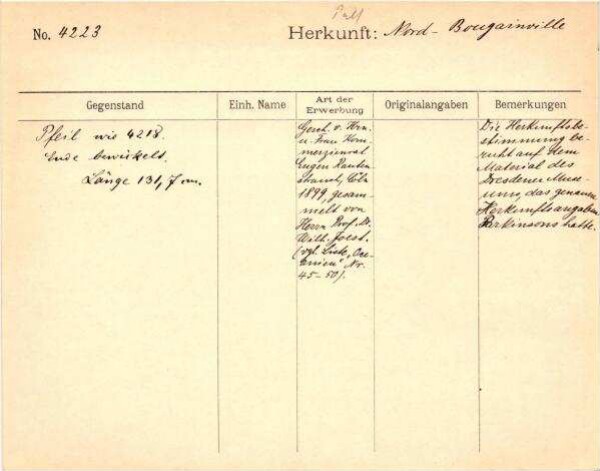 No. 4223
Herkunft: Nord-Bougainville
Gegenstand
Einh. Name
Art der
Erwerbung
Originalangaben
Bemerkungen
Pfeil wie 4218.
Ende bewickelt.
Länge 131,7 cm.
Gesch. v. Hrn.
u. Frau Kom-
merzienrat
Eugen Rauten-
strauch, Cöln
1899, gesam-
melt von
Herrn Prof. Dr.
Wilh. Joest.
(vgl. Liste "Oce-
anien" Nr.
45-50).
Die Herkunftsbe-
stimmung be-
ruht auf dem
Material des
Dresdener Muse-
ums, das genaue
Herkunftsangaben
Parkinsons hatte.